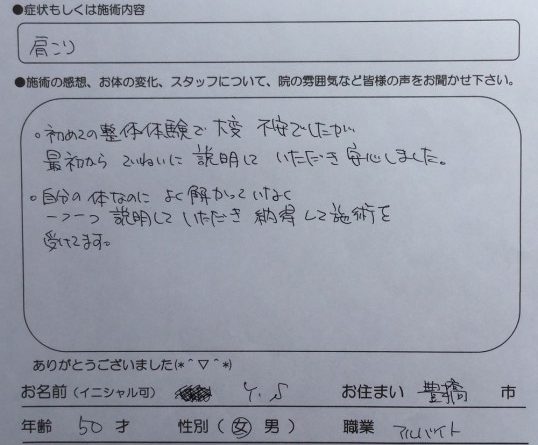 ●症状もしくは施術内容
肩こり
●施術の感想、お体の変化、スタッフについて、院の雰囲気など皆様の声をお聞かせ下さい。
。初めての整体体験で大変 不安でしたが、
最初から ていねいに 説明して いただき 安心しました。
。自分の体なのに よく解かっていなく
一つ一つ 説明して いただき 納得して施術を
受けてます。
ありがとうございました(*^▽^*)
お名前（イニシャル可） Y.S お住まい 豊橋 市
年齢 50 才 性別（ 女 男 ） 職業 アルバイト